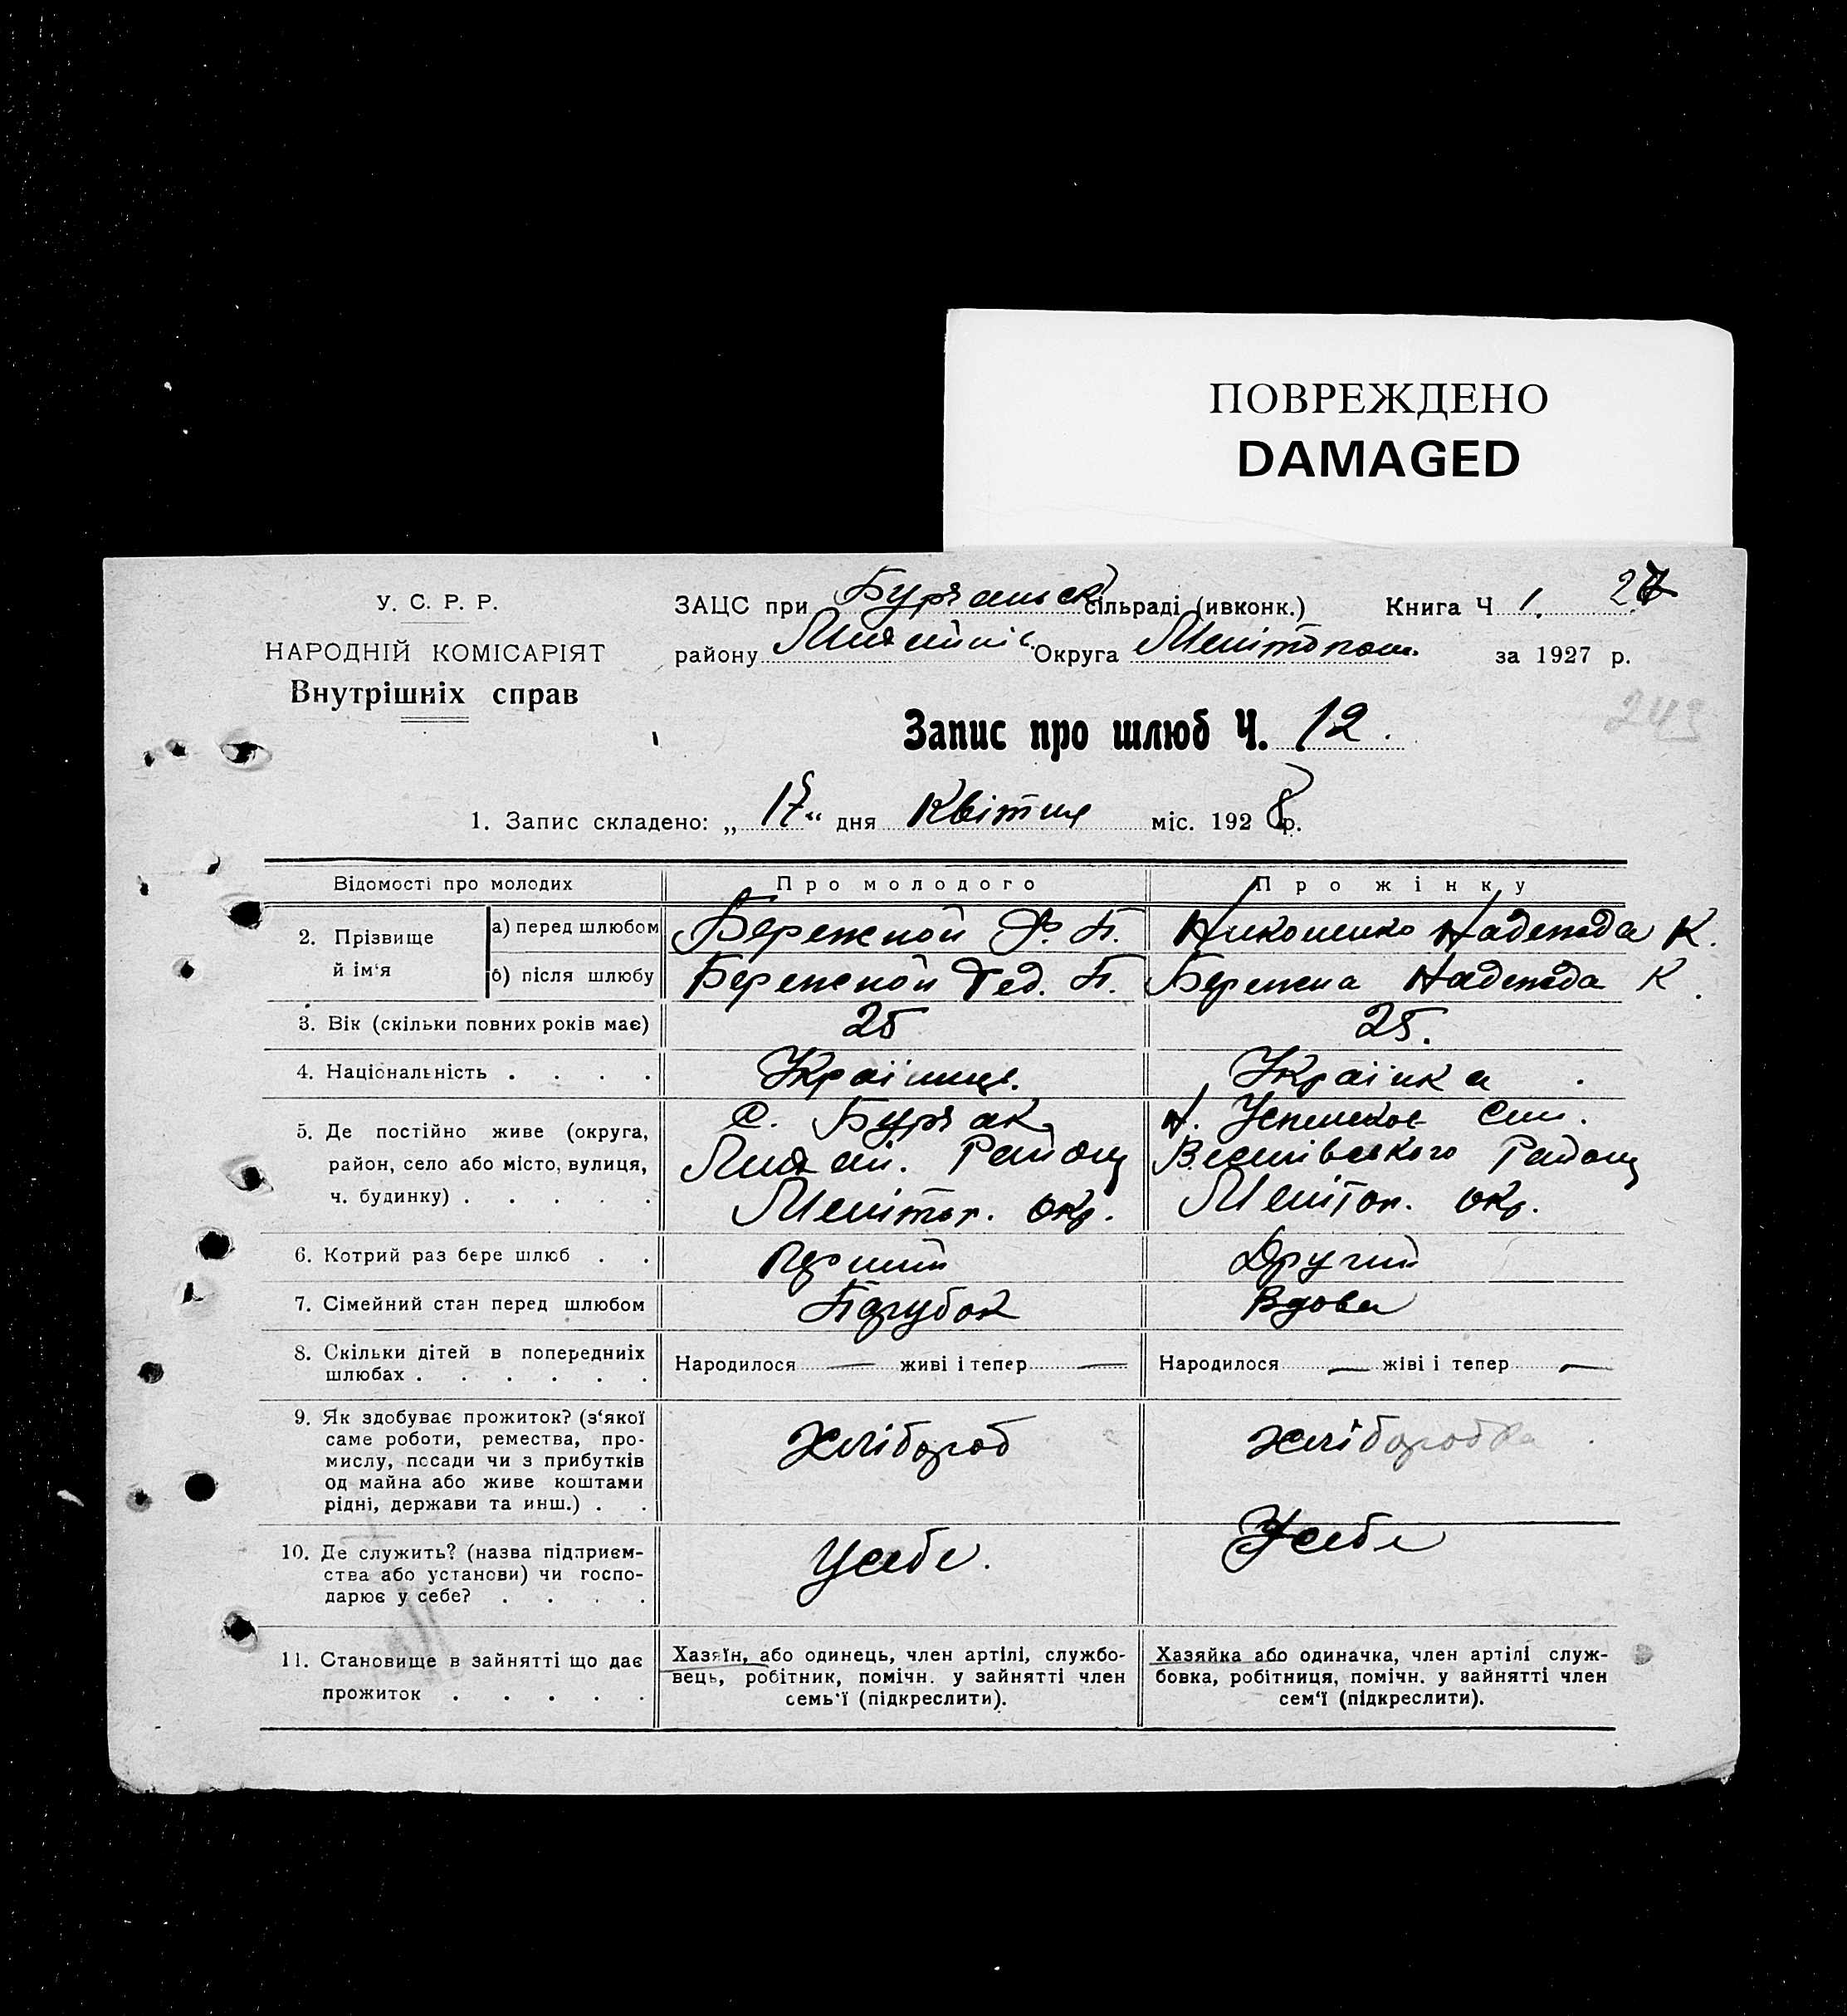 ПОВРЕЖДЕНО
DAMAGED
У. С. Р. Р.
НАРОДНІЙ КОМІСАРІЯТ
Внутрішніх справ
ЗАЦС при Бурчацьск сільраді (ивконк.) Книга Ч 1.
району Округа Мелітопол. за 1927 р.
243
Запис про шлюб Ч. 12.
1. Запис складено: „ 17 “ дня Квітня міс. 1928 р.
Відомості про молодих
Про молодого
Про жінку
2. Прізвище й ім‘я
а) перед шлюбом Бережной Ф. П. Надежда К.
б) після шлюбу Бережной Фед. П. Бережна Надежда К.
3. Вік (скільки повних років має) 25 25.
4. Національність . . . . Українець. Українка.
5. Де постійно живе (округа, с. Бурчак Н. Успенское
район, село або місто, вулиця, Району Веселівського Району
ч. будинку) . . . . . Мелітоп. окр. Мелітоп. окр.
6. Котрий раз бере шлюб . . Перший Другий
7. Сімейний стан перед шлюбом Парубок Вдова
8. Скільки дітей в попередниіх
шлюбах . . . . . .
Народилося — живі і тепер —
Народилося — жіві і тепер —
9. Як здобуває прожиток? (з‘якої
саме роботи, ремества, про-
мислу, посади чи з прибутків
од майна або живе коштами
рідні, держави та инш.) . .
Хлібороб
хліборобка
10. Де служить? (назва підприєм-
ства або установи) чи госпо-
дарює у себе? . . . .
У себе.
У себе
11. Становище в зайнятті що дає
прожиток . . . . .
Хазяїн, або одинець, член артілі, службо-
вець, робітник, помічн. у зайнятті член
семь‘ї (підкреслити).
Хазяйка або одиначка, член артілі служ-
бовка, робітниця, помічн. у зайнятті член
сем‘ї (підкреслити).